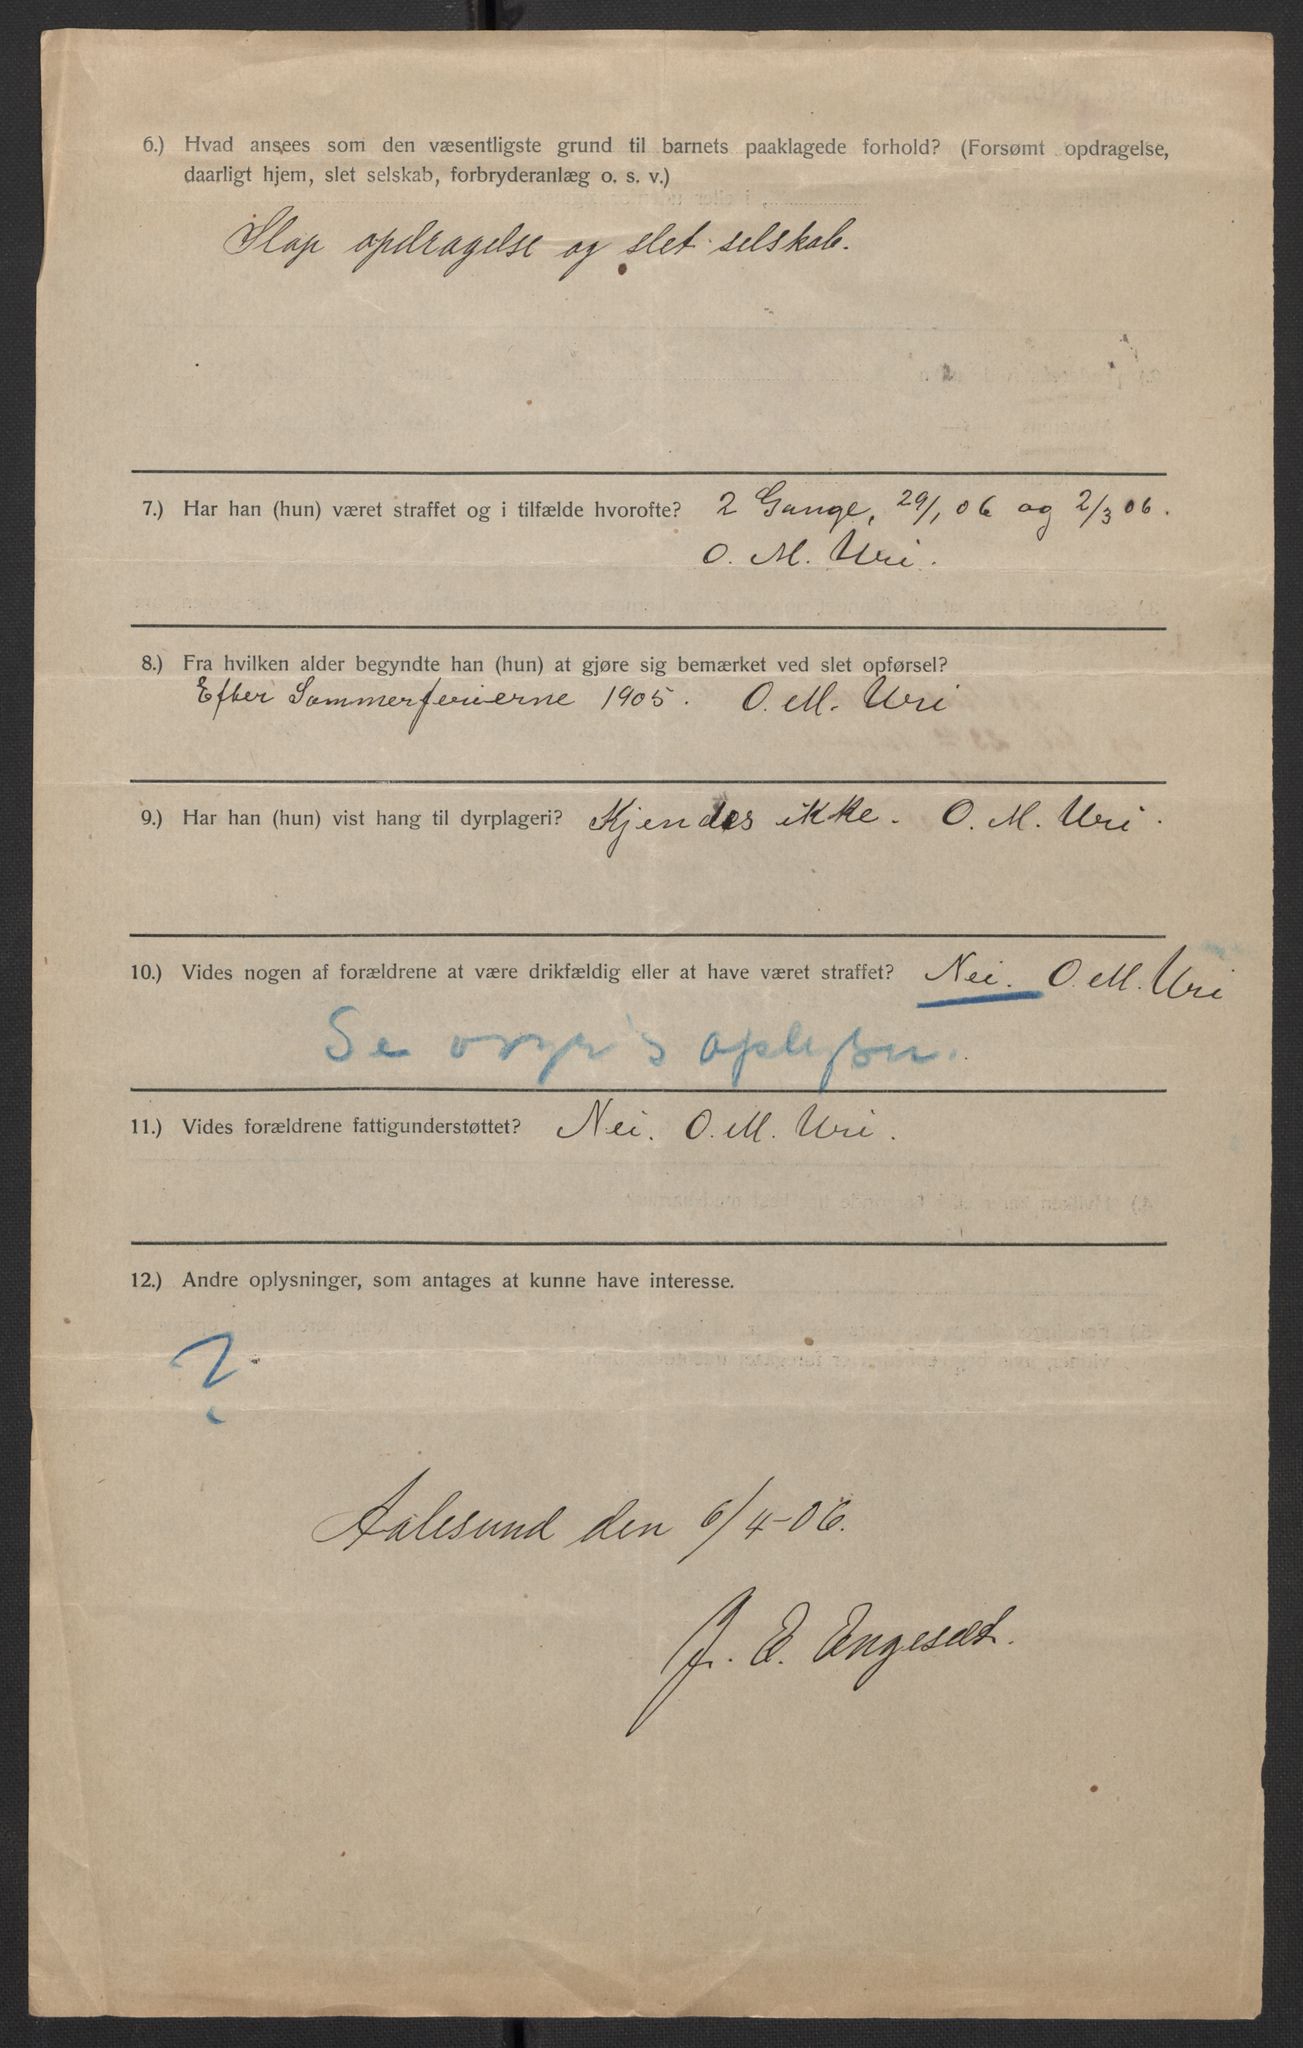 6.) Hvad ansees som den væsentligste grund til barnets paaklagede forhold? (Forsømt opdragelse,
daarligt hjem, slet selskab, forbryderanlæg o. s. v.)
Slap opdragelse og slet selskab.
7.) Har han (hun) været straffet og i tilfælde hvorofte? 2 Gange, 29/1 06 og 2/3 06.
O. M. Uri.
8.) Fra hvilken alder begyndte han (hun) at gjøre sig bemærket ved slet opførsel?
Efter Sommerferierne 1905. O. M. Uri
9.) Har han (hun) vist hang til dyrplageri? Kjendes ikke. O. M. Uri.
10.) Vides nogen af forældrene at være drikfældig eller at have været straffet? Nei. O. M. Uri
Se
11.) Vides forældrene fattigunderstøttet? Nei. O. M. Uri.
12.) Andre oplysninger, som antages at kunne have interesse.
?
Aalesund den 6/4-06.
J. E. Engeset.